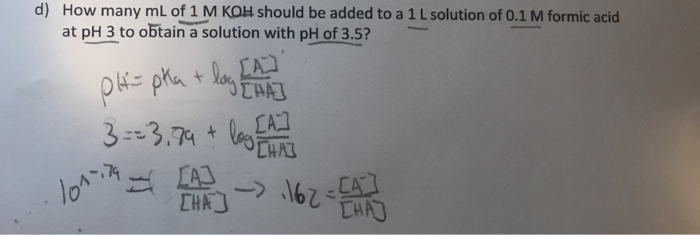 d) How many mL of 1 M KOH should be added to a 1 L solution of 0.1 M formic acid
at pH 3 to obtain a solution with pH of 3.5?
pH = pKa + log [A⁻]/[HA]
3 == 3.79 + log [A⁻]/[HA]
10^-.79 = [A⁻]/[HA] → .162 = [A⁻]/[HA]